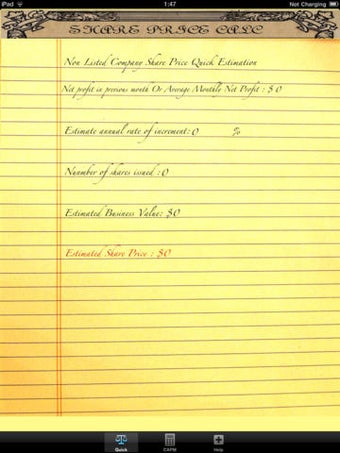 iPad 1:47 Not Charging
SHARE PRICE CALC
Non Listed Company Share Price Quick Estimation
Net profit in previous month Or Average Monthly Net Profit : $ 0
Estimate annual rate of increment: 0 %
Nunmber of shares issued : 0
Estimated Business Value: $0
Estimated Share Price : $0
Quick CAPM Help